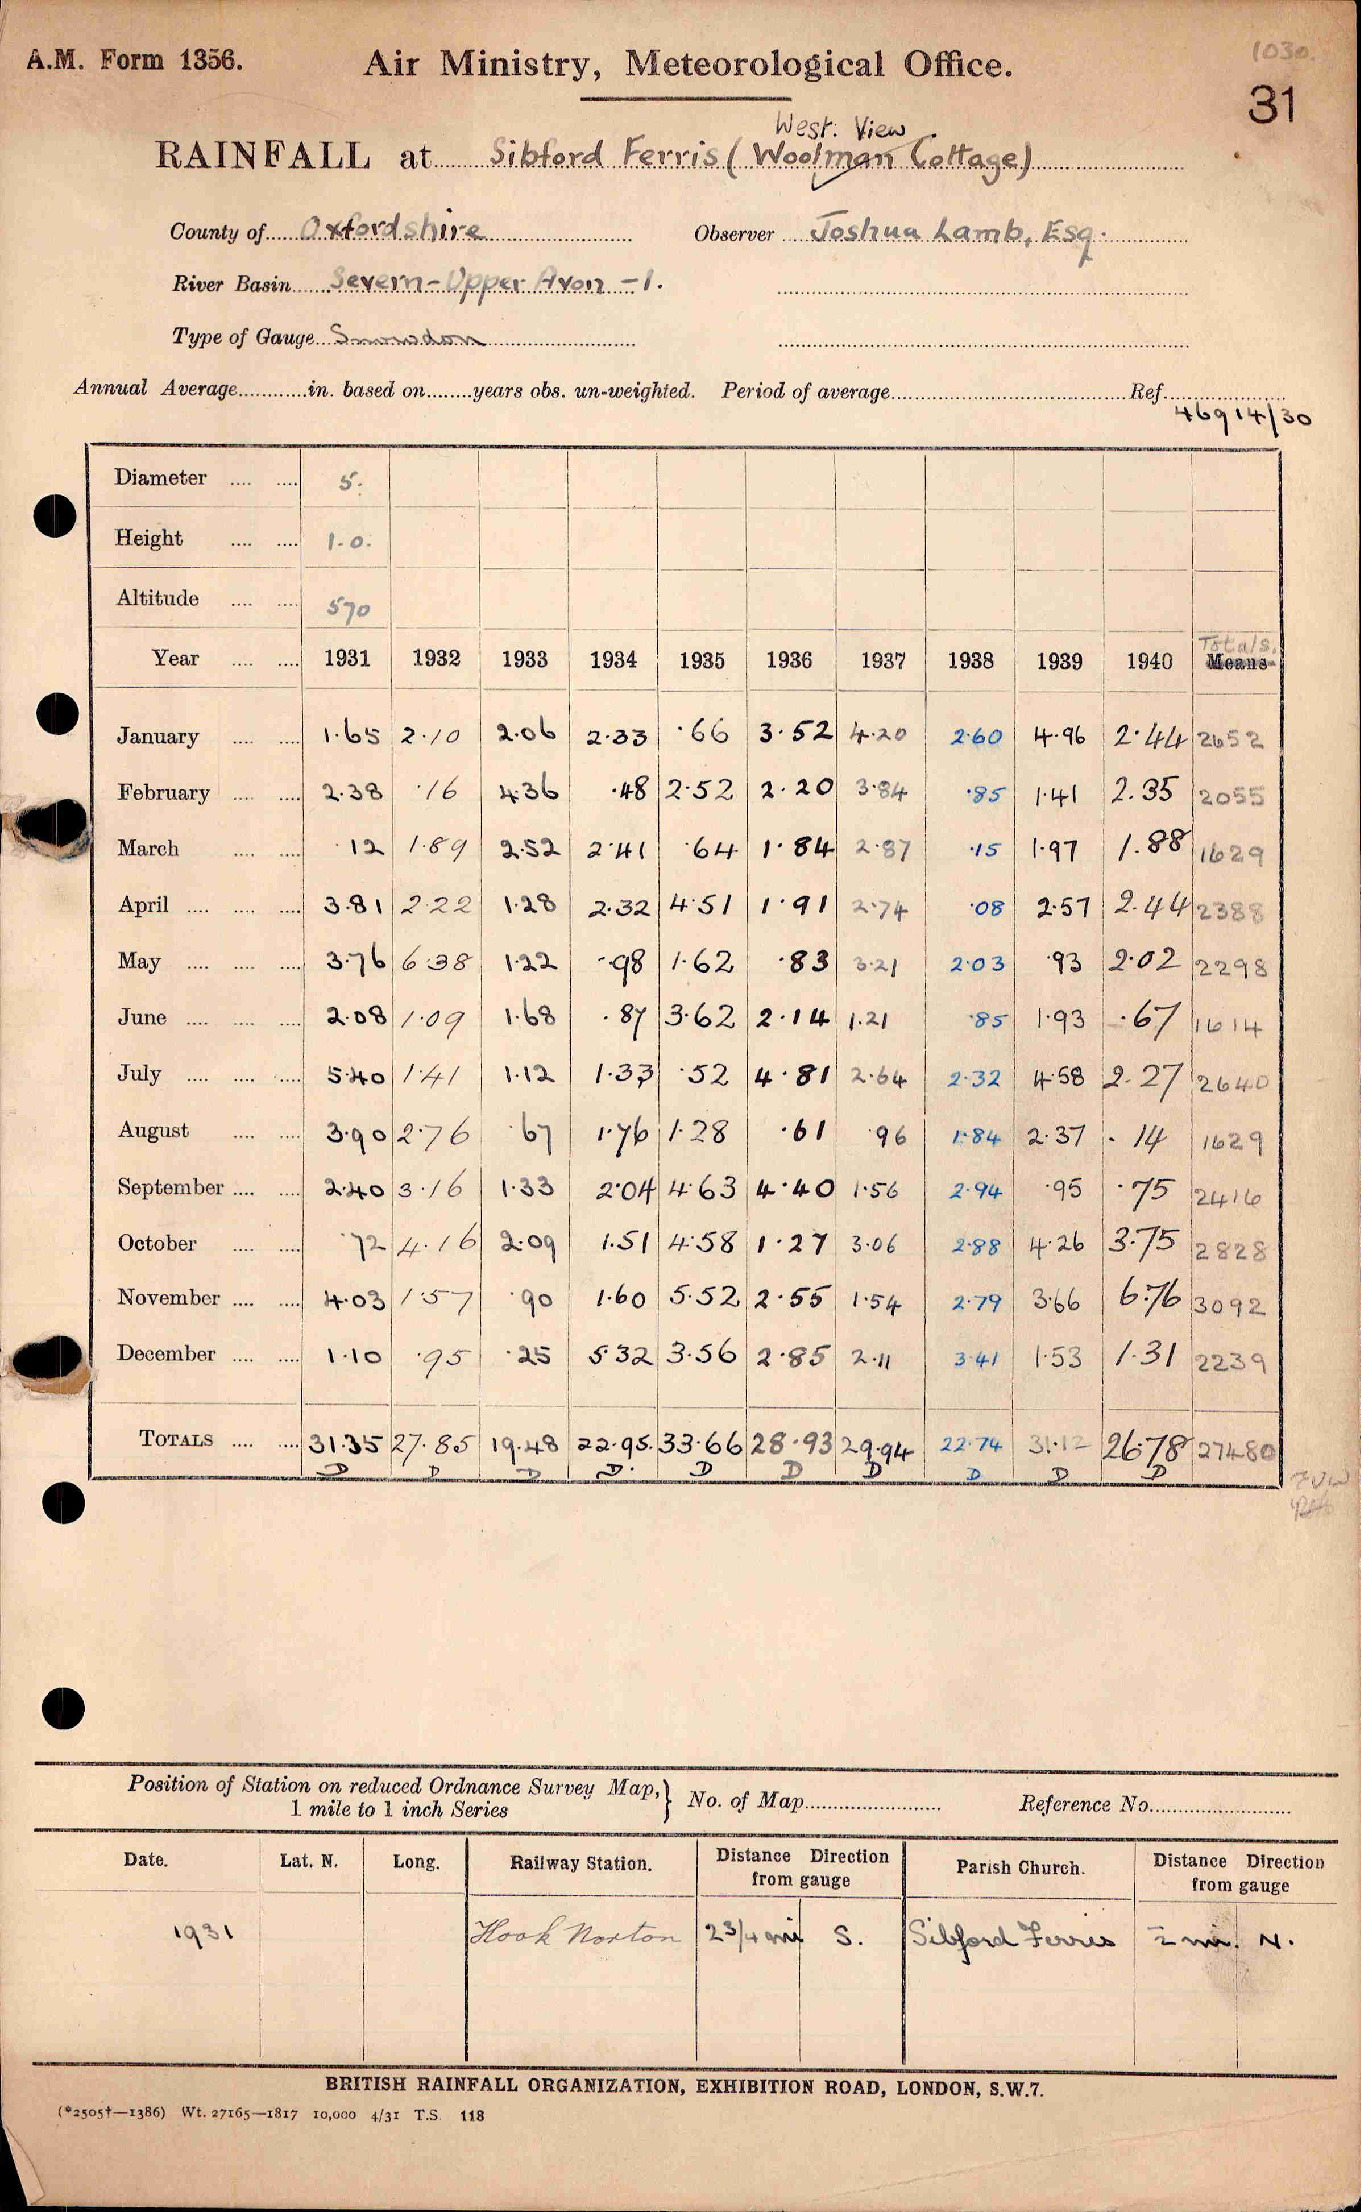 1030.
A.M. Form 1356. Air Ministry, Meteorological Office.
31
West View.
RAINFALL at Sibford Ferris (Woolman Cottage)
County of Oxfordshire Observer Joshua Lamb, Esq.
River Basin Severn-Upper Avon -1.
Type of Gauge Snowdon
Annual Average in. based on years obs. un-weighted. Period of average Ref.
46914/30
Diameter 5.
Height 1.0.
Altitude 570
Totals.
Year 1931 1932 1933 1934 1935 1936 1937 1938 1939 1940 Means
January 1.65 2.10 2.06 2.33 .66 3.52 4.20 2.60 4.96 2.44 2652
February 2.38 .16 4.36 .48 2.52 2.20 3.84 .85 1.41 2.35 2055
March .12 1.89 2.52 2.41 .64 1.84 2.87 .15 1.97 1.88 1629
April 3.81 2.22 1.28 2.32 4.51 1.91 2.74 .08 2.57 2.44 2388
May 3.76 6.38 1.22 .98 1.62 .83 3.21 2.03 .93 2.02 2298
June 2.08 1.09 1.68 .87 3.62 2.14 1.21 .85 1.93 .67 1614
July 5.40 1.41 1.12 1.33 .52 4.81 2.64 2.32 4.58 2.27 2640
August 3.90 2.76 .67 1.76 1.28 .61 .96 1.84 2.37 .14 1629
September 2.40 3.16 1.33 2.04 4.63 4.40 1.56 2.94 .95 .75 2416
October .72 4.16 2.09 1.51 4.58 1.27 3.06 2.88 4.26 3.75 2828
November 4.03 1.57 .90 1.60 5.52 2.55 1.54 2.79 3.66 6.76 3092
December 1.10 .95 .25 5.32 3.56 2.85 2.11 3.41 1.53 1.31 2239
TOTALS 31.35 27.85 19.48 22.95. 33.66 28.93 29.94 22.74 31.12 26.78 27480
D D D D. D D D D D D
Position of Station on reduced Ordnance Survey Map, } No. of Map Reference No.
1 mile to 1 inch Series
Date. Lat. N. Long. Railway Station. Distance Direction from gauge Parish Church. Distance Direction from gauge
1931 Hook Norton 2 3/4 mi S. Sibford Ferris mi. N.
BRITISH RAINFALL ORGANIZATION, EXHIBITION ROAD, LONDON, S.W.7.
(*2505†—1386) Wt. 27165—1817 10,000 4/31 T.S. 118